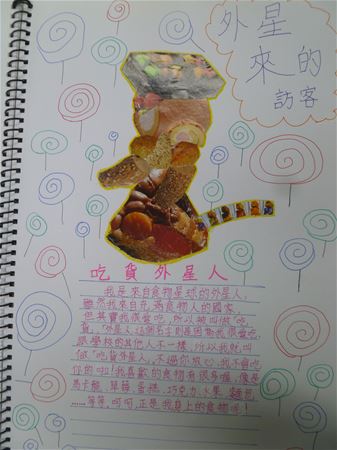 外星
來的
訪客
吃貨外星人
我是來自食物星球的外星人,
雖然我來自充滿食物人的國家,
但其實我很愛吃,所以被叫做「吃
貨」,「外星人」這個名字則是因為我很愛吃,
跟學校的其他人不一樣,所以我就叫
做「吃貨外星人」,不過你放心,我不會吃
你的啦!我喜歡的食物有很多喔,像是
馬卡龍、草莓、蛋糕、巧克力、水果、麵包
……等等,呵呵,正是我身上的食物呢!